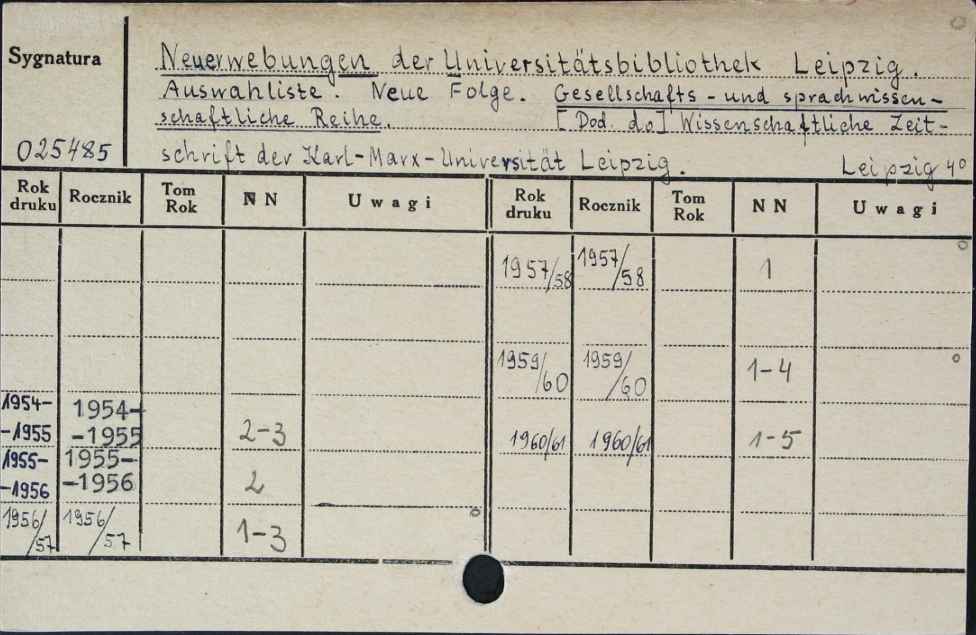 Sygnatura
Neuerwebungen der Universitätsbibliothek Leipzig.
Auswahliste. Neue Folge. Gesellschafts - und sprachwissen-
schaftliche Reihe. [Dod. do] Wissenschaftliche Zeit-
025485 schrift der Karl-Marx-Universität Leipzig. Leipzig 4°
Rok druku Rocznik Tom Rok NN Uwagi Rok druku Rocznik Tom Rok NN Uwagi
1957/58 1957/58 1
1959/60 1959/60 1-4
1954- 1954-
-1955 -1955 2-3 1960/61 1960/61 1-5
1955- 1955-
-1956 -1956 2
1956/57 1956/57 1-3